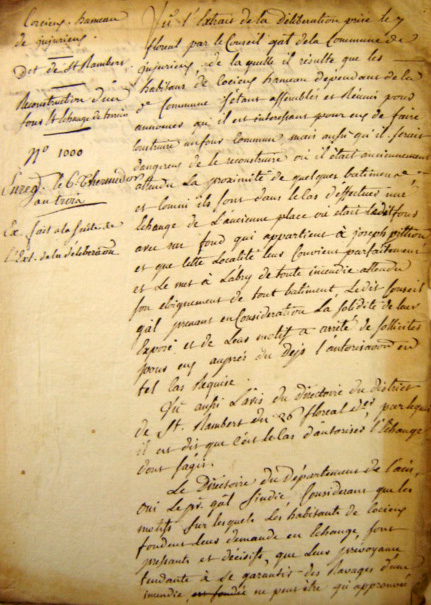 Corciens hameau
de jujurieux.
Dct de St Rambert
Reconstruction d'un
four Echange de terrein
N° 1000
Enreg. le 6 Thermidor
an trois
Ex. fait a la suite de
l'Ext. de la déliberation
Vu l'Extrait de la déliberation prise le 7
floreal par le Conseil gãl de la Commune de
jujurieux, de laquelle il résulte que les
habitans de Cociens hameau dependant de la
de Commune s'étant assemblés et Réunis pour
annoncer qu'il est interessant pour eux de faire
Construire un four Commun mais aussi qu'il serait
dangereux de le reconstruire où il était anciennement
attendu la proximité de quelques batimens
et comme ils sont dans le cas d'effectuer une
Echange de l'ancienne place où était ledit four
avec un fond qui appartient à joseph
et que cette Localité leur Convient parfaitement
et Le met à Labry de toute incendie attendu
son eloignement de tout batiment. Ledit Conseil
gãl prenant en Consideration la solidité de leur
Exposé et de leurs motifs a arrêté de solliciter
pour eux auprès du l'autorisation en
tel cas Requise.
Vu aussi L'avis du directoire du District
de St. Rambert du 26 floreal der par lequel
il est dit que c'est le cas d'autoriser l'Echange
dont s'agit.
Le Directoire du Département de l'ain,
oui Le pr. gãl sindic, Considerant que les
motifs sur lesquels Les habitants de Cociens
fondent leur demande en Echange, sont
pressants et décisifs, que leur prévoyance
tendante à se garantir des Ravages d'une
incendie, ne peut être qu'approuvée